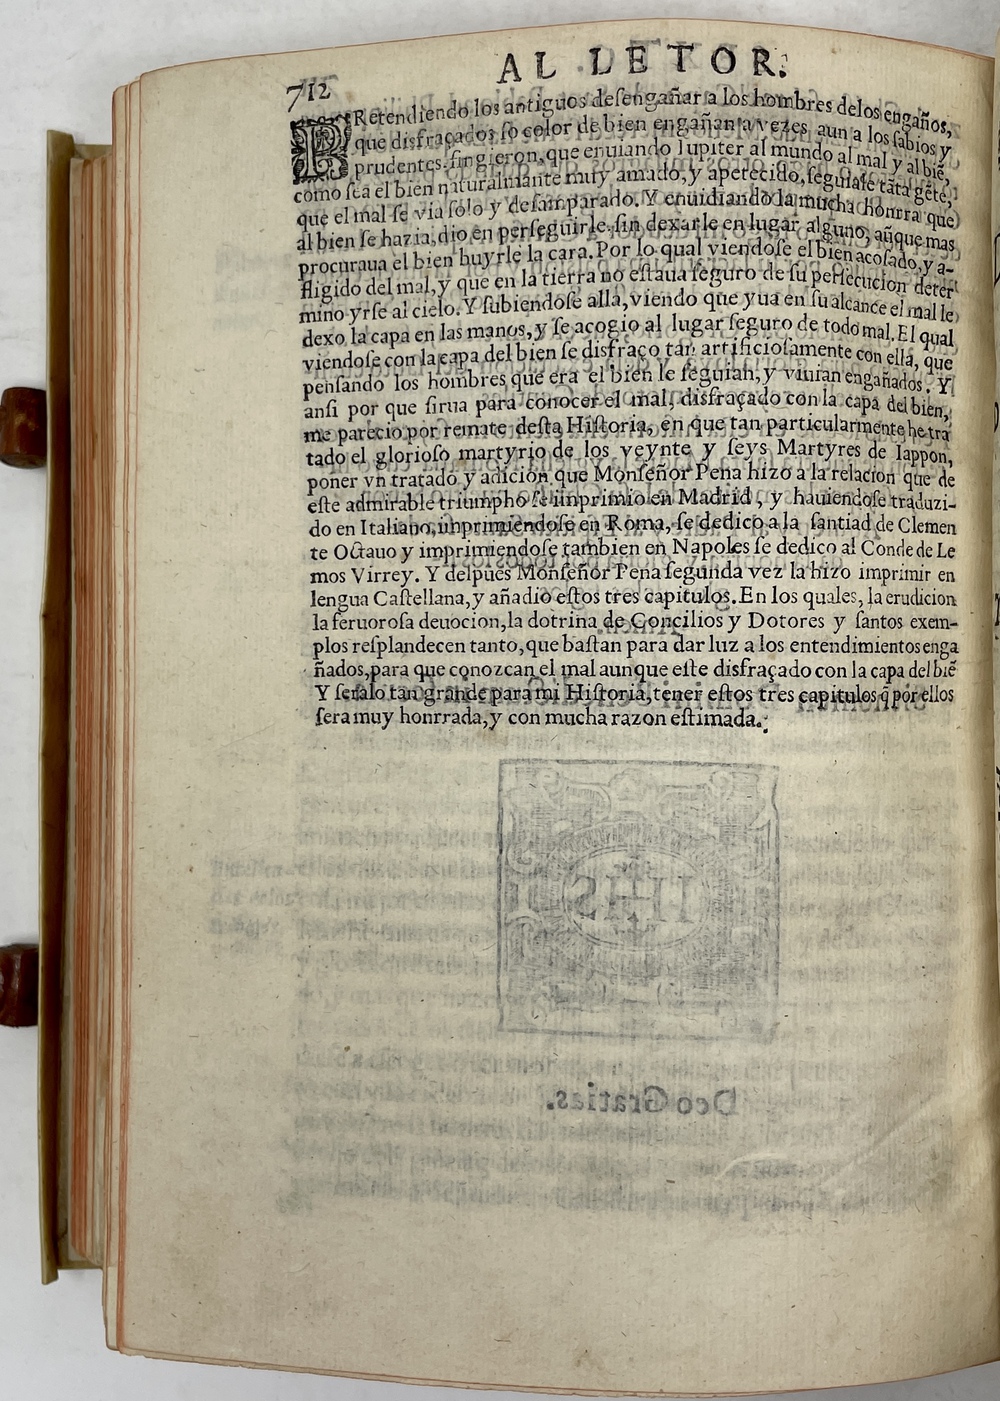 AL LETOR.
712
PRetendiendo los antiguos desengañar a los hombres delos engaños,
que disfraçados so color de bien engañan a vezes, aun a los sabios y
prudentes. fingieron, que enuiando Iupiter al mundo al mal y al biẽ,
como sea el bien naturalmante muy amado, y apetecido, seguiale tãta gẽte,
que el mal se via solo y desamparado. Y enuidiando la mucha honrra que
al bien se hazia, dio en perseguirle, sin dexarle en lugar alguno, aũque mas
procuraua el bien huyrle la cara. Por lo qual viendose el bien acosado, y a-
fligido del mal, y que en la tierra no estaua seguro de su persecucion deter
mino yrse al cielo. Y subiendose alla, viendo que yua en su alcance el mal le
dexo la capa en las manos, y se acogio al lugar seguro de todo mal. El qual
viendose con la capa del bien se disfraço tan artificiosamente con ella, que
pensando los hombres que era el bien le seguian, y viuian engañados. Y
ansi por que sirua para conocer el mal, disfraçado con la capa del bien,
me parecio por remate desta Historia, en que tan particularmente he tra
tado el glorioso martyrio de los veynte y seys Martyres de Iappon,
poner vn tratado y adicion que Monseñor Pena hizo a la relacion que de
este admirable triumpho se imprimio en Madrid, y hauiendose traduzi-
do en Italiano, imprimiendose en Roma, se dedico a la santiad de Clemen
te Octauo y imprimiendose tambien en Napoles se dedico al Conde de Le
mos Virrey. Y despues Monseñor Pena segunda vez la hizo imprimir en
lengua Castellana, y añadio estos tres capitulos. En los quales, la erudicion
la feruorosa deuocion, la dotrina de Concilios y Dotores y santos exem-
plos resplandecen tanto, que bastan para dar luz a los entendimientos enga
ñados, para que conozcan el mal aunque este disfraçado con la capa del biẽ
Y seralo tan grande para mi Historia, tener estos tres capitulos q̃ por ellos
sera muy honrrada, y con mucha razon estimada.
IHS
Deo Gratias.